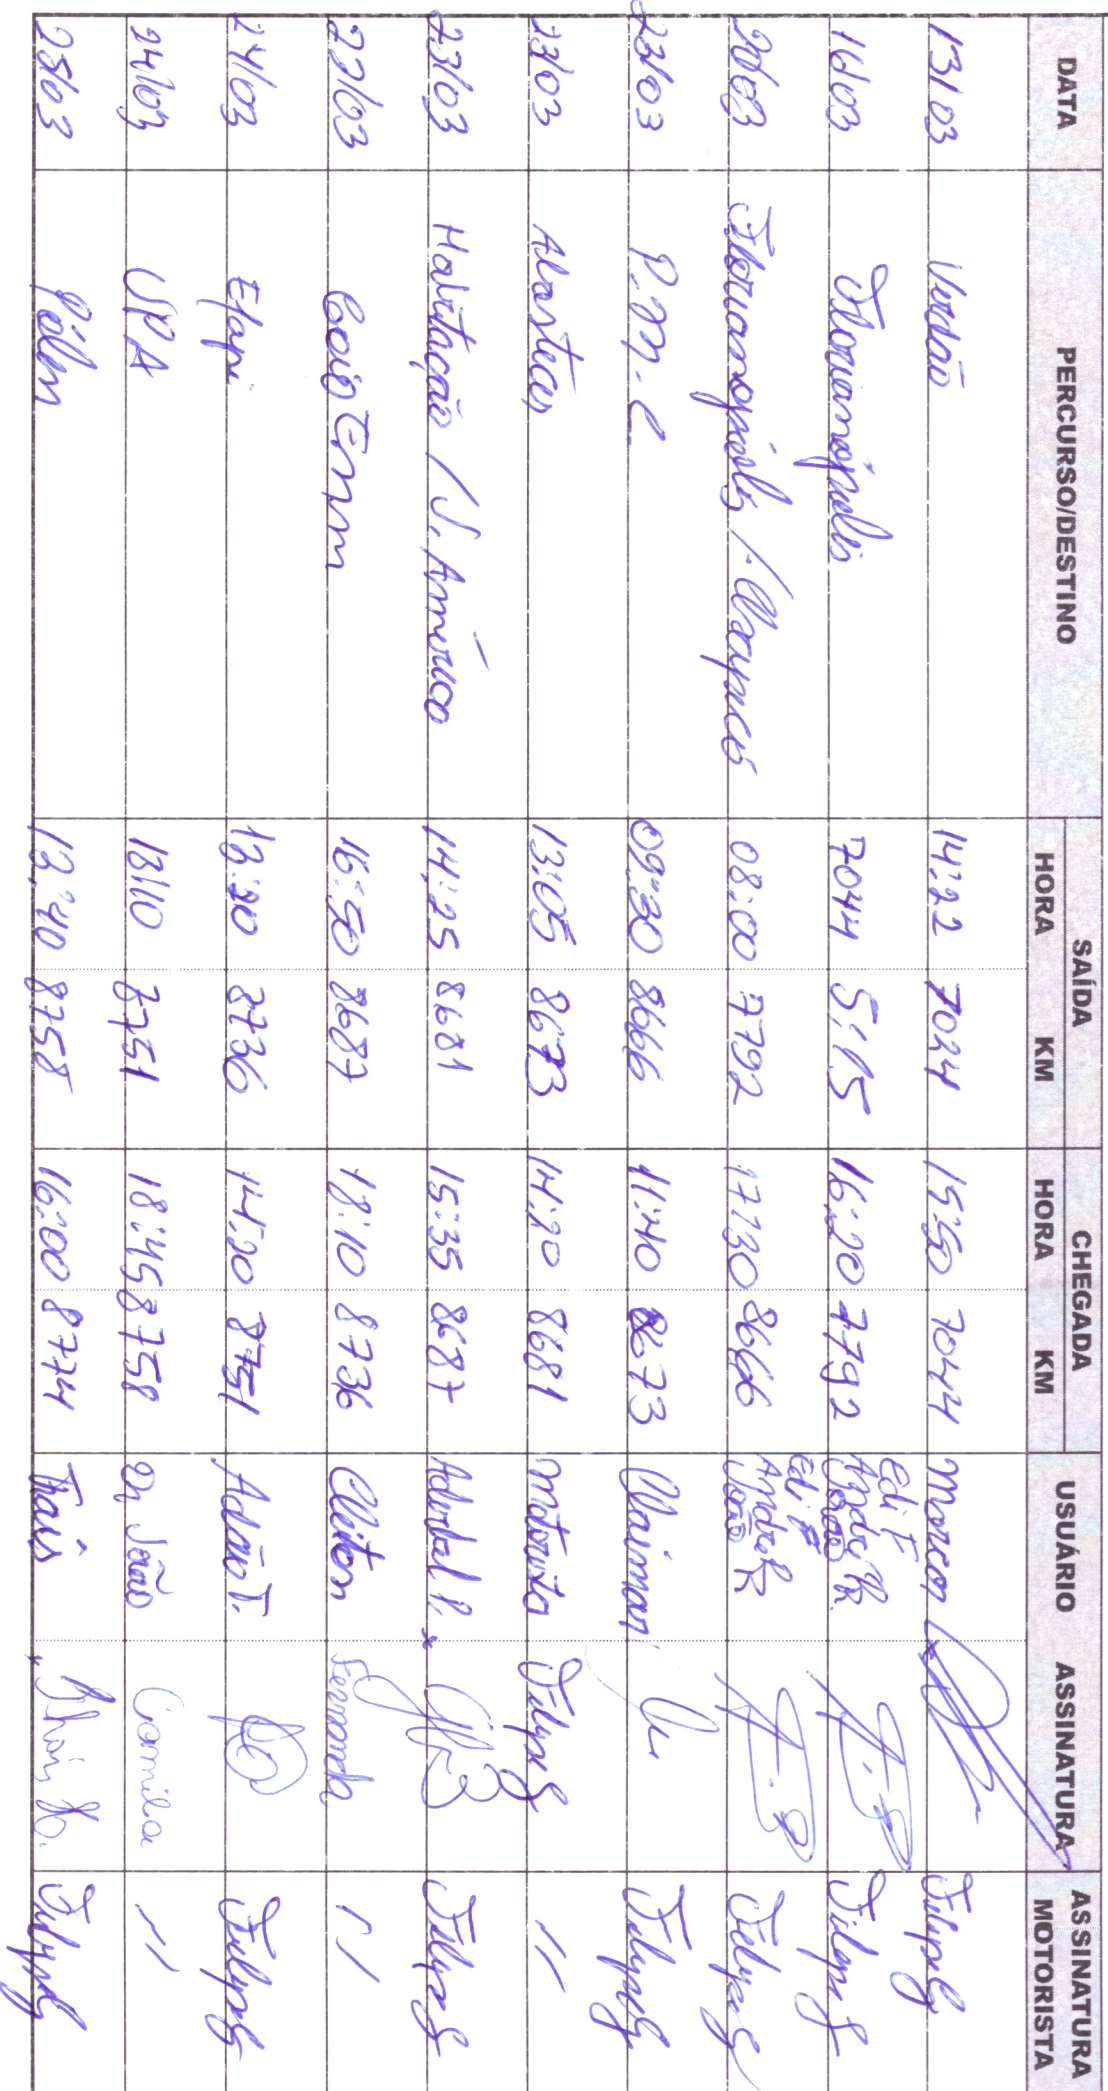 DATA PERCURSO/DESTINO SAÍDA CHEGADA USUÁRIO ASSINATURA ASSINATURA MOTORISTA
HORA KM HORA KM
13/03 14:22 7024 15:50 7044 Marcon Felipe G
16/03 Florianópolis 7044 5:15 16:20 7792 Edi F André R. João Felipe G
20/03 Florianópolis / Chapecó 08:00 7792 17:30 8666 Edi F André R João Felipe G
23/03 P.M.C 09:30 8666 11:40 8673 Felipe G
23/03 Abastecer 13:05 8673 14:20 8681 Motorista Felipe G 11
23/03 Habitação / J. América 14:25 8681 15:35 8687 Aderbal P. Felipe G
22/03 16:50 8687 18:10 8736 Cleiton Fernanda 11
24/03 Efapi 13:20 8736 14:20 8751 Adão T. Felipe G
24/03 UPA 18:10 8751 18:45 8758 Dr João Camila 11
25/03 Pólen 13:40 8758 16:00 8774 Thaís Felipe G